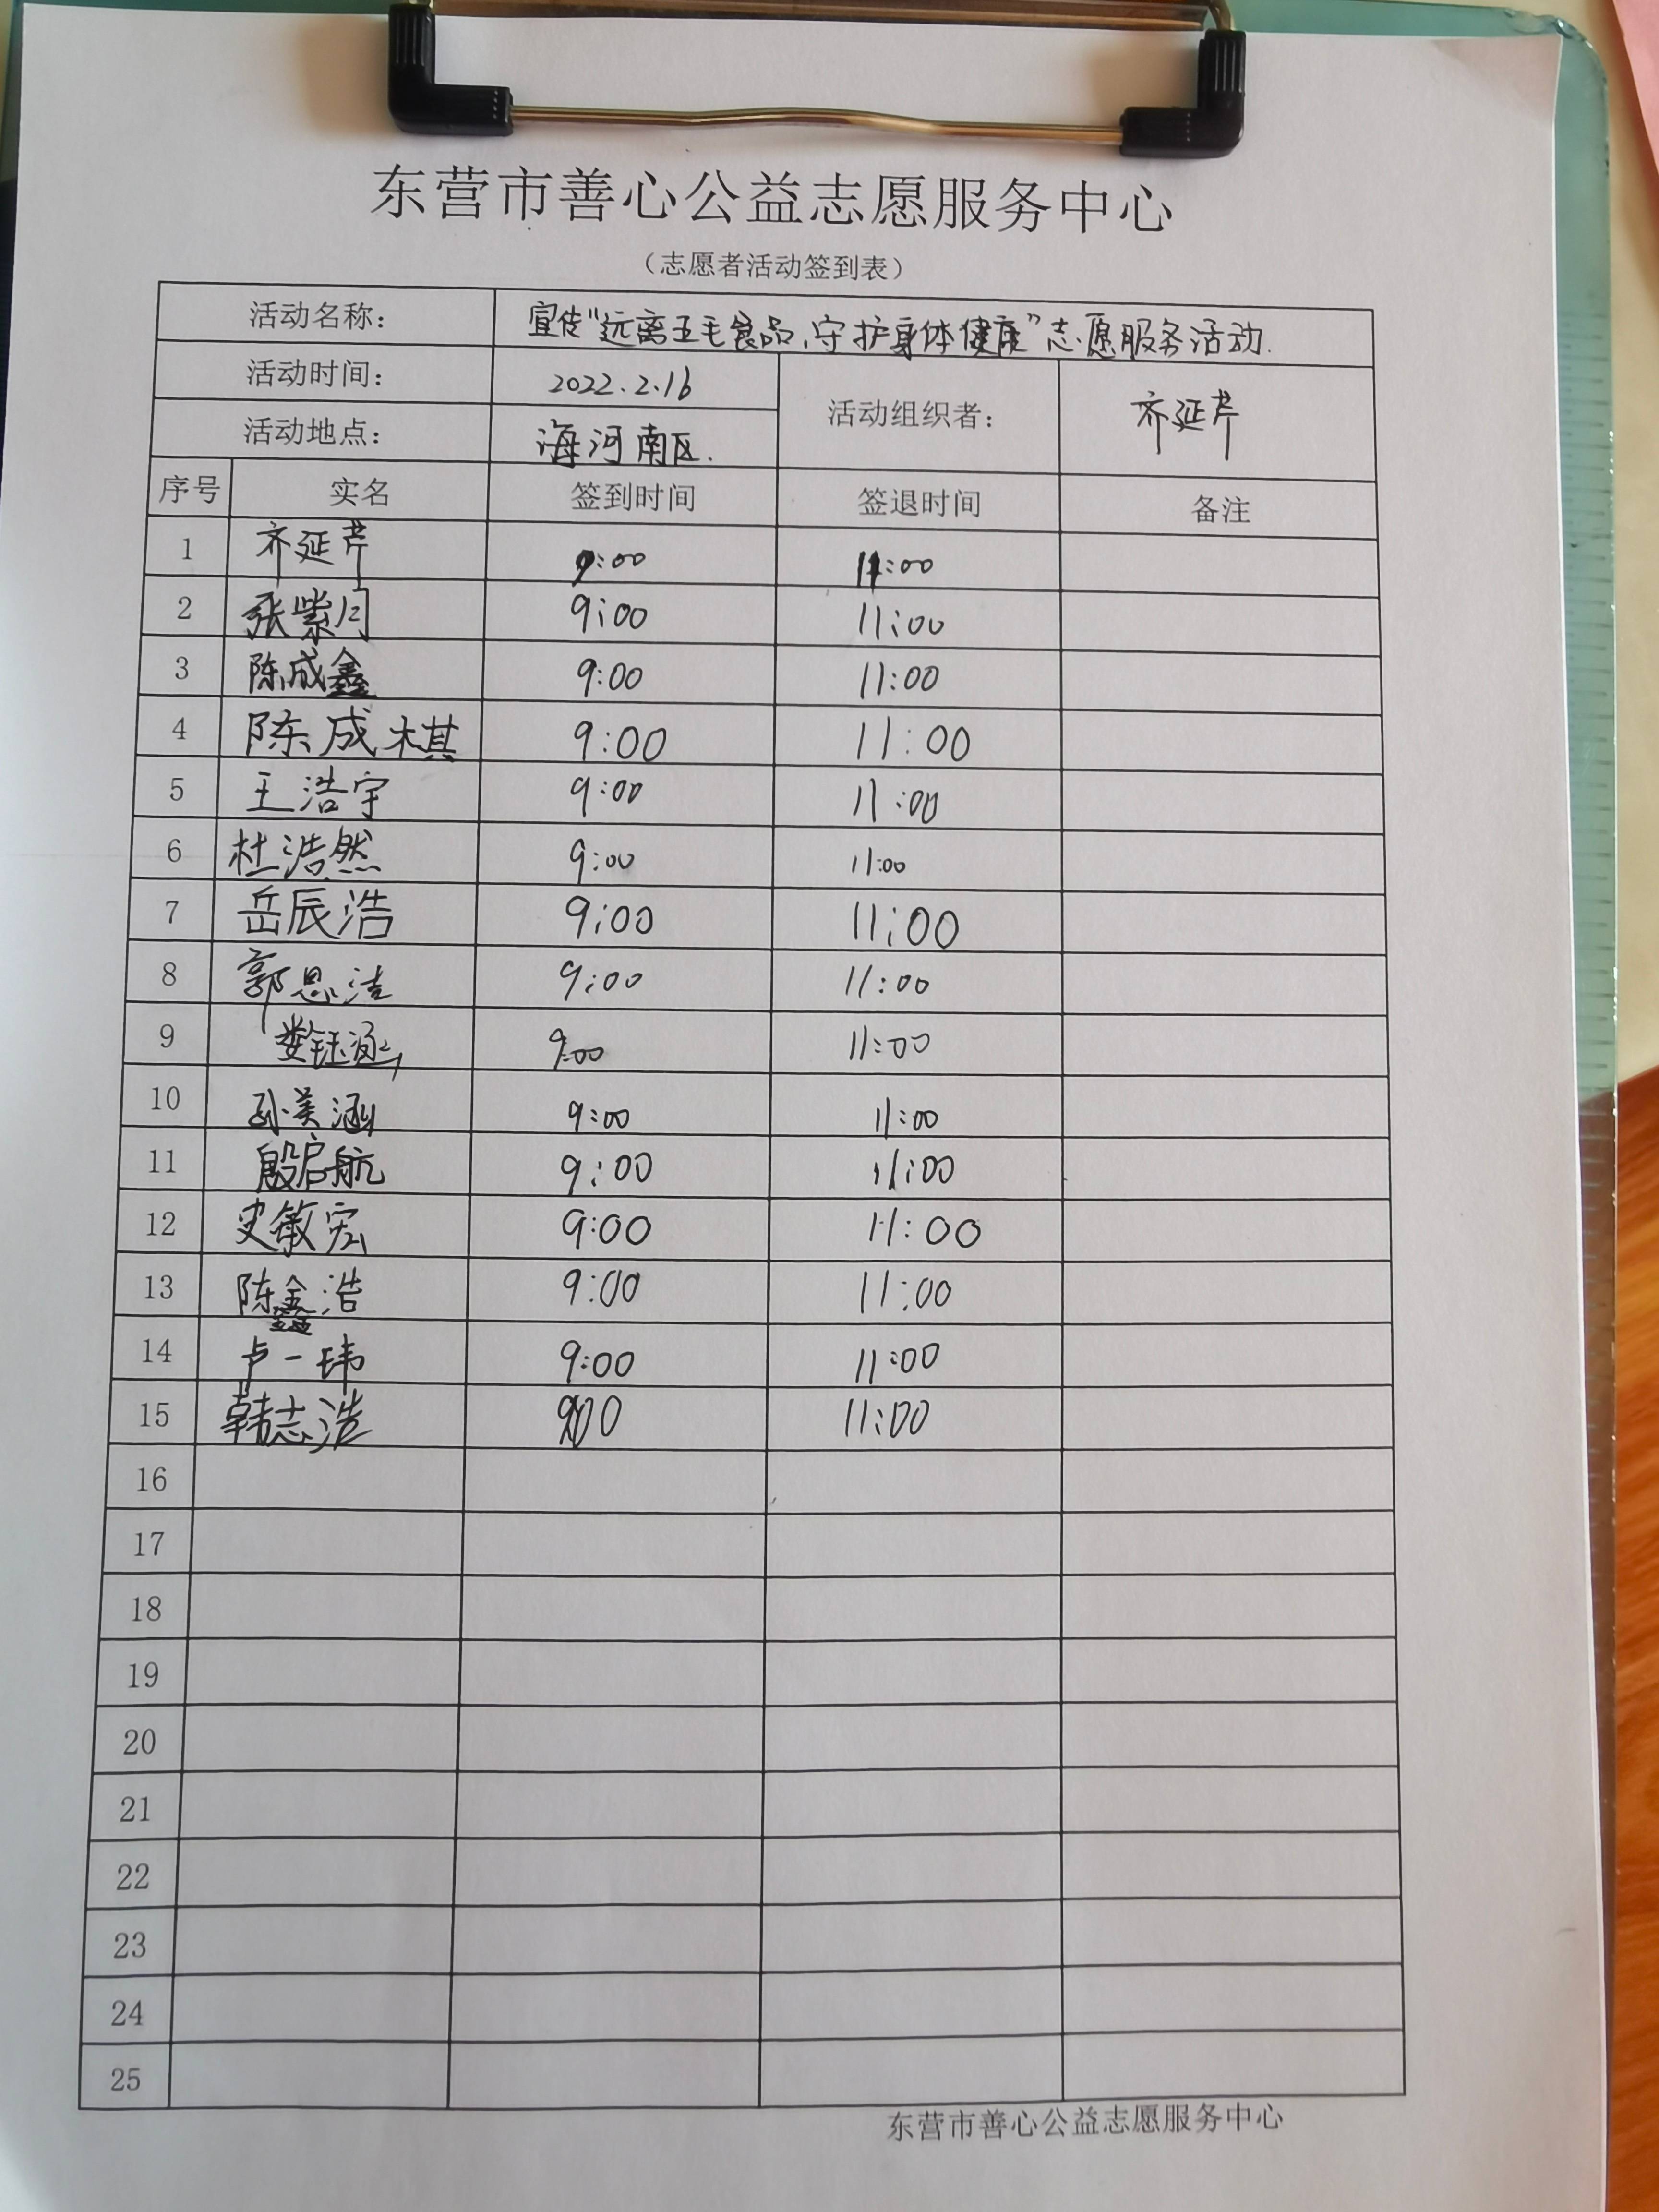 东营市善心公益志愿服务中心
（志愿者活动签到表）
活动名称： 宣传“远离五毛食品,守护身体健康”志愿服务活动.
活动时间： 2022.2.16 活动组织者： 齐延芹
活动地点： 海河南区.
序号 实名 签到时间 签退时间 备注
1 齐延芹 9:00 11:00
2 张紫 9:00 11:00
3 陈成鑫 9:00 11:00
4 陈成棋 9:00 11:00
5 王浩宇 9:00 11:00
6 杜浩然 9:00 11:00
7 岳辰浩 9:00 11:00
8 郭思洁 9:00 11:00
9 娄钰涵 9:00 11:00
10 孙美涵 9:00 11:00
11 殷启航 9:00 11:00
12 史敏宏 9:00 11:00
13 陈鑫浩 9:00 11:00
14 卢一玮 9:00 11:00
15 韩志浩 9:00 11:00
16
17
18
19
20
21
22
23
24
25
东营市善心公益志愿服务中心